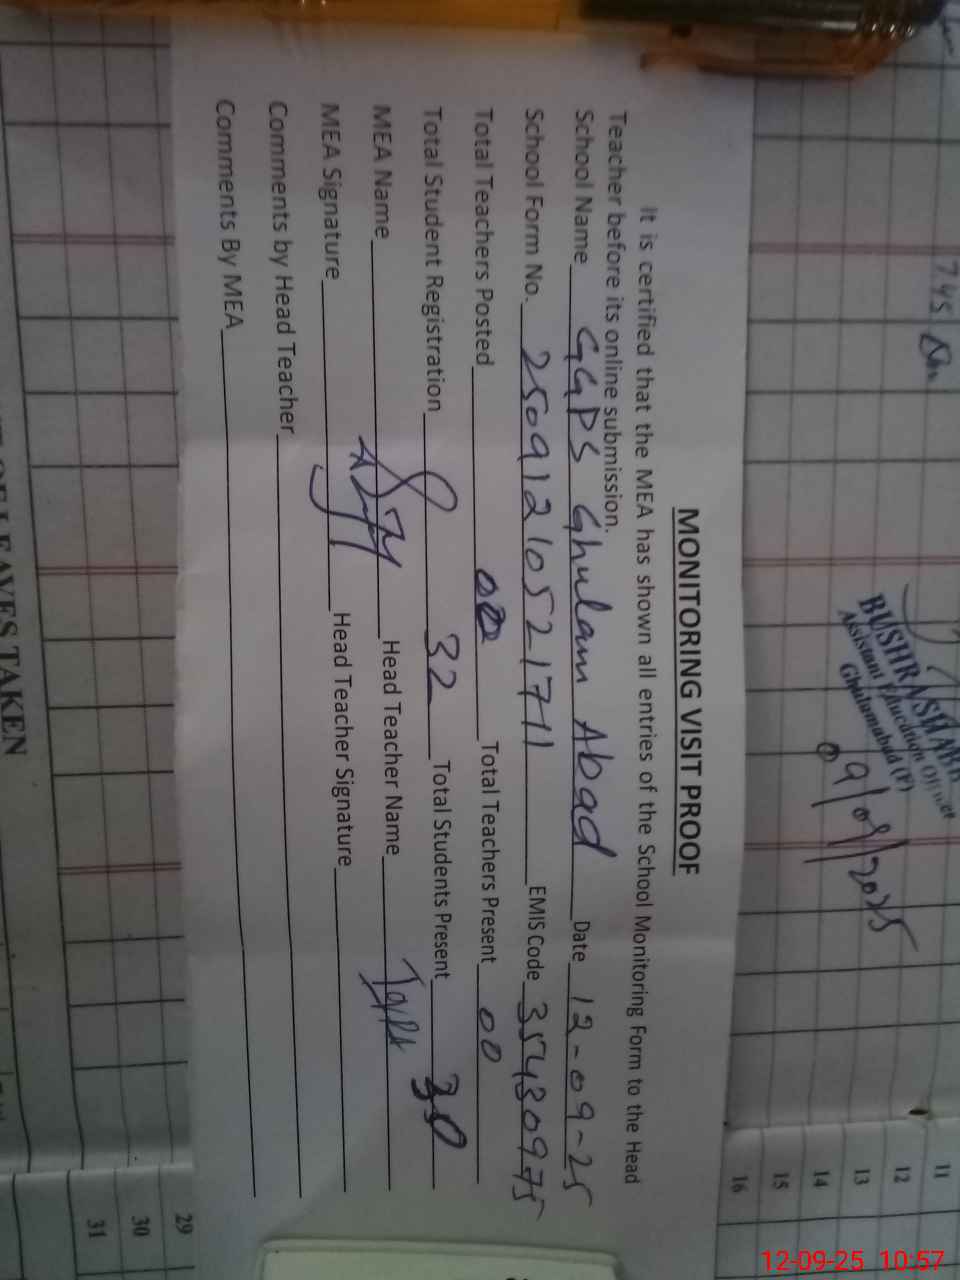 MONITORING VISIT PROOF
It is certified that the MEA has shown all entries of the School Monitoring Form to the Head
Teacher before its online submission.
School Name GGPS Ghulam Abad Date 12-09-25
School Form No. 25091210521711 EMIS Code 35430975
Total Teachers Posted 00 Total Teachers Present 00
Total Student Registration 32 Total Students Present 30
MEA Name Head Teacher Name
MEA Signature Head Teacher Signature
Comments by Head Teacher
Comments By MEA
7.45
BUSHRA SHARIF
Assistant Education Officer
Ghulamabad (F)
9/09/2025
11
12
13
14
15
16
29
30
31
LEAVES TAKEN
12-09-25 10:57